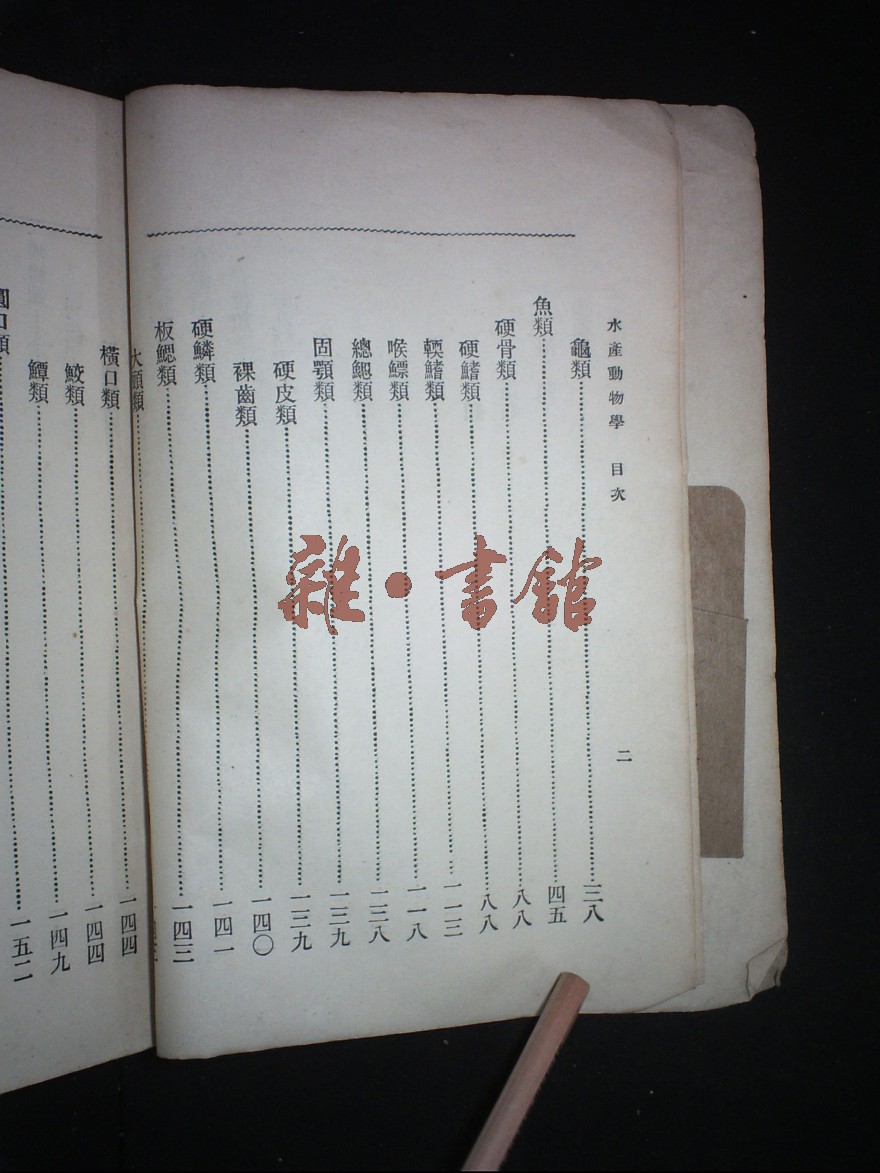 水產動物學 目次 二
龜類 三八
魚類 四五
硬骨類 八八
硬鰭類 八八
輭鰭類 一一三
喉鰾類 一一八
總鰓類 一三八
固顎類 一三九
硬皮類 一三九
裸齒類 一四〇
硬鱗類 一四一
板鰓類 一四三
類
橫口類 一四四
鮫類 一四四
鱏類 一四九
圓口類 一五二
雜·書館